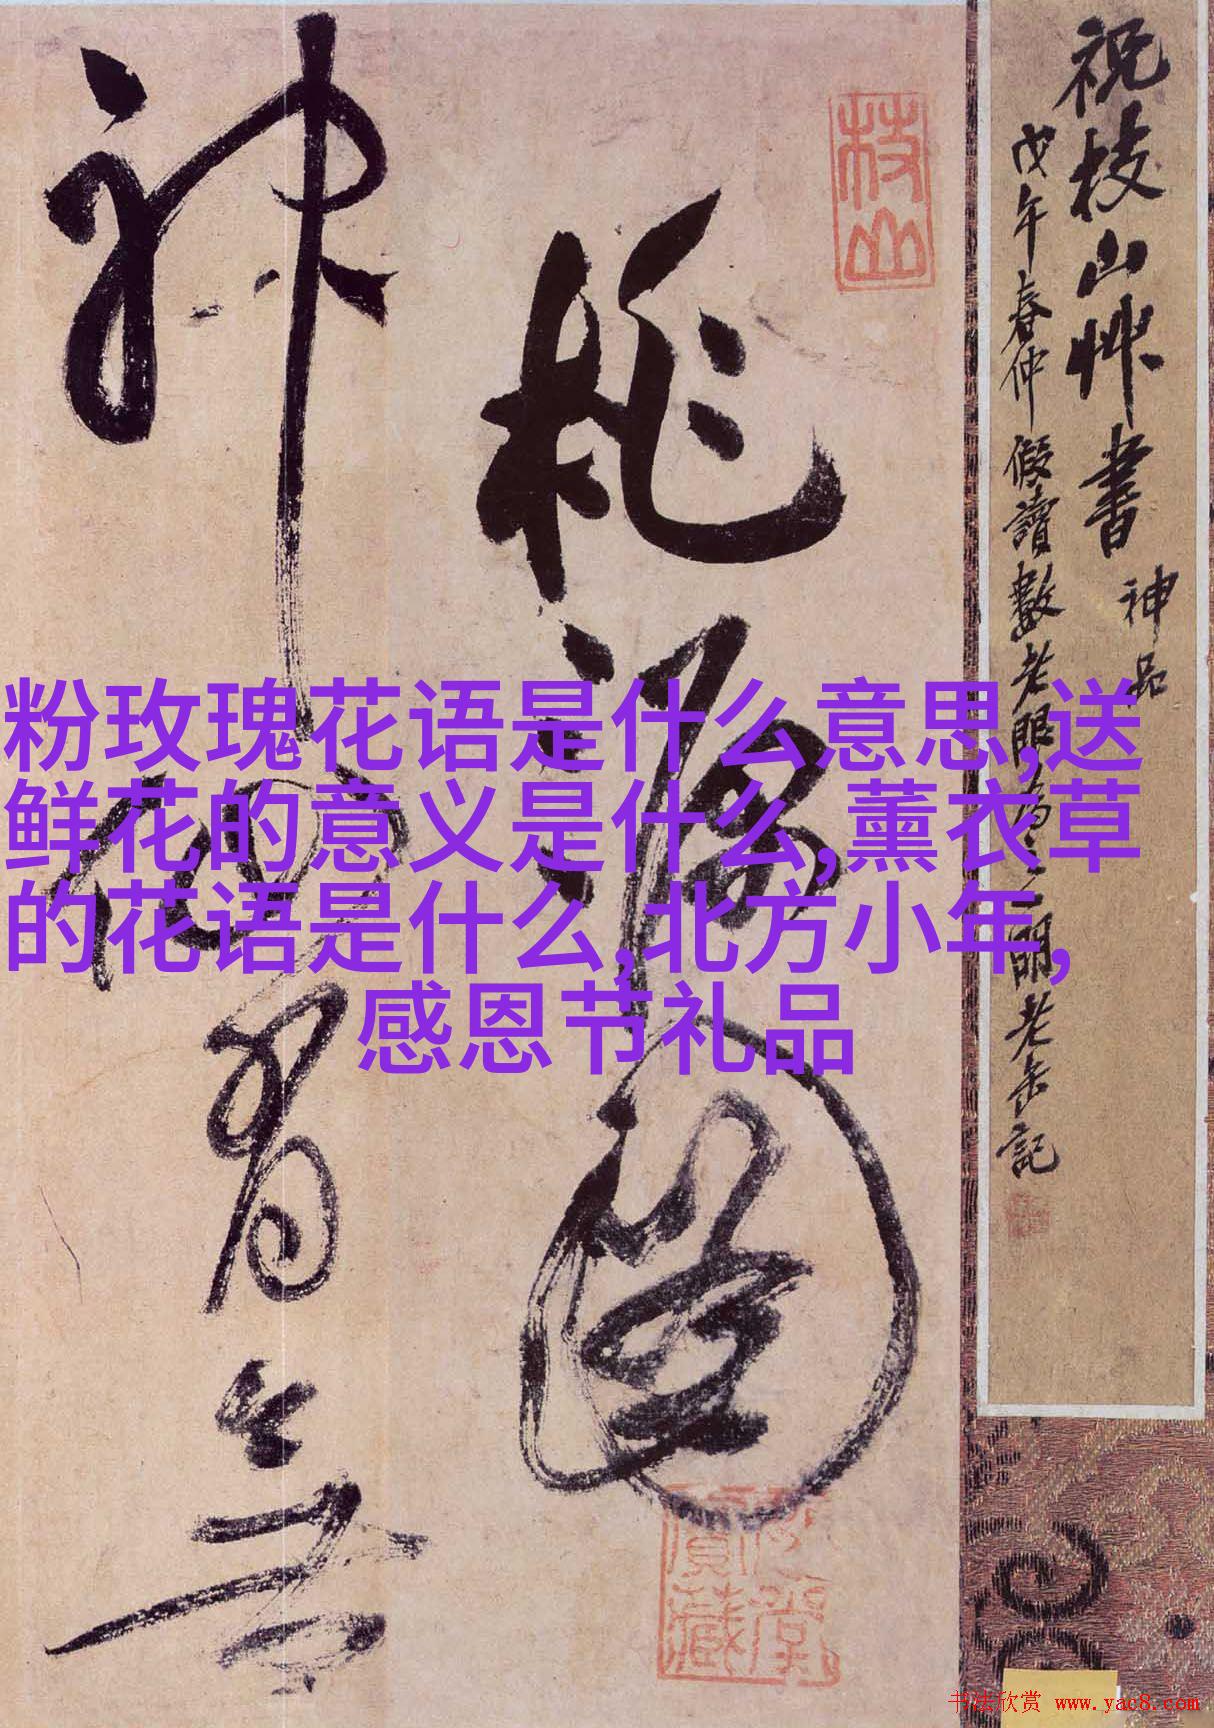 粉玫瑰花语是什么意思,送
鲜花的意义是什么,薰衣草
的花语是什么,北方小年,
感恩节礼品
祝枝山艸書
神品
戊午春仲假讀數老眼為之明老缶記
枝山
桃源圖
神仙有無
书法欣赏 www.yac8.com